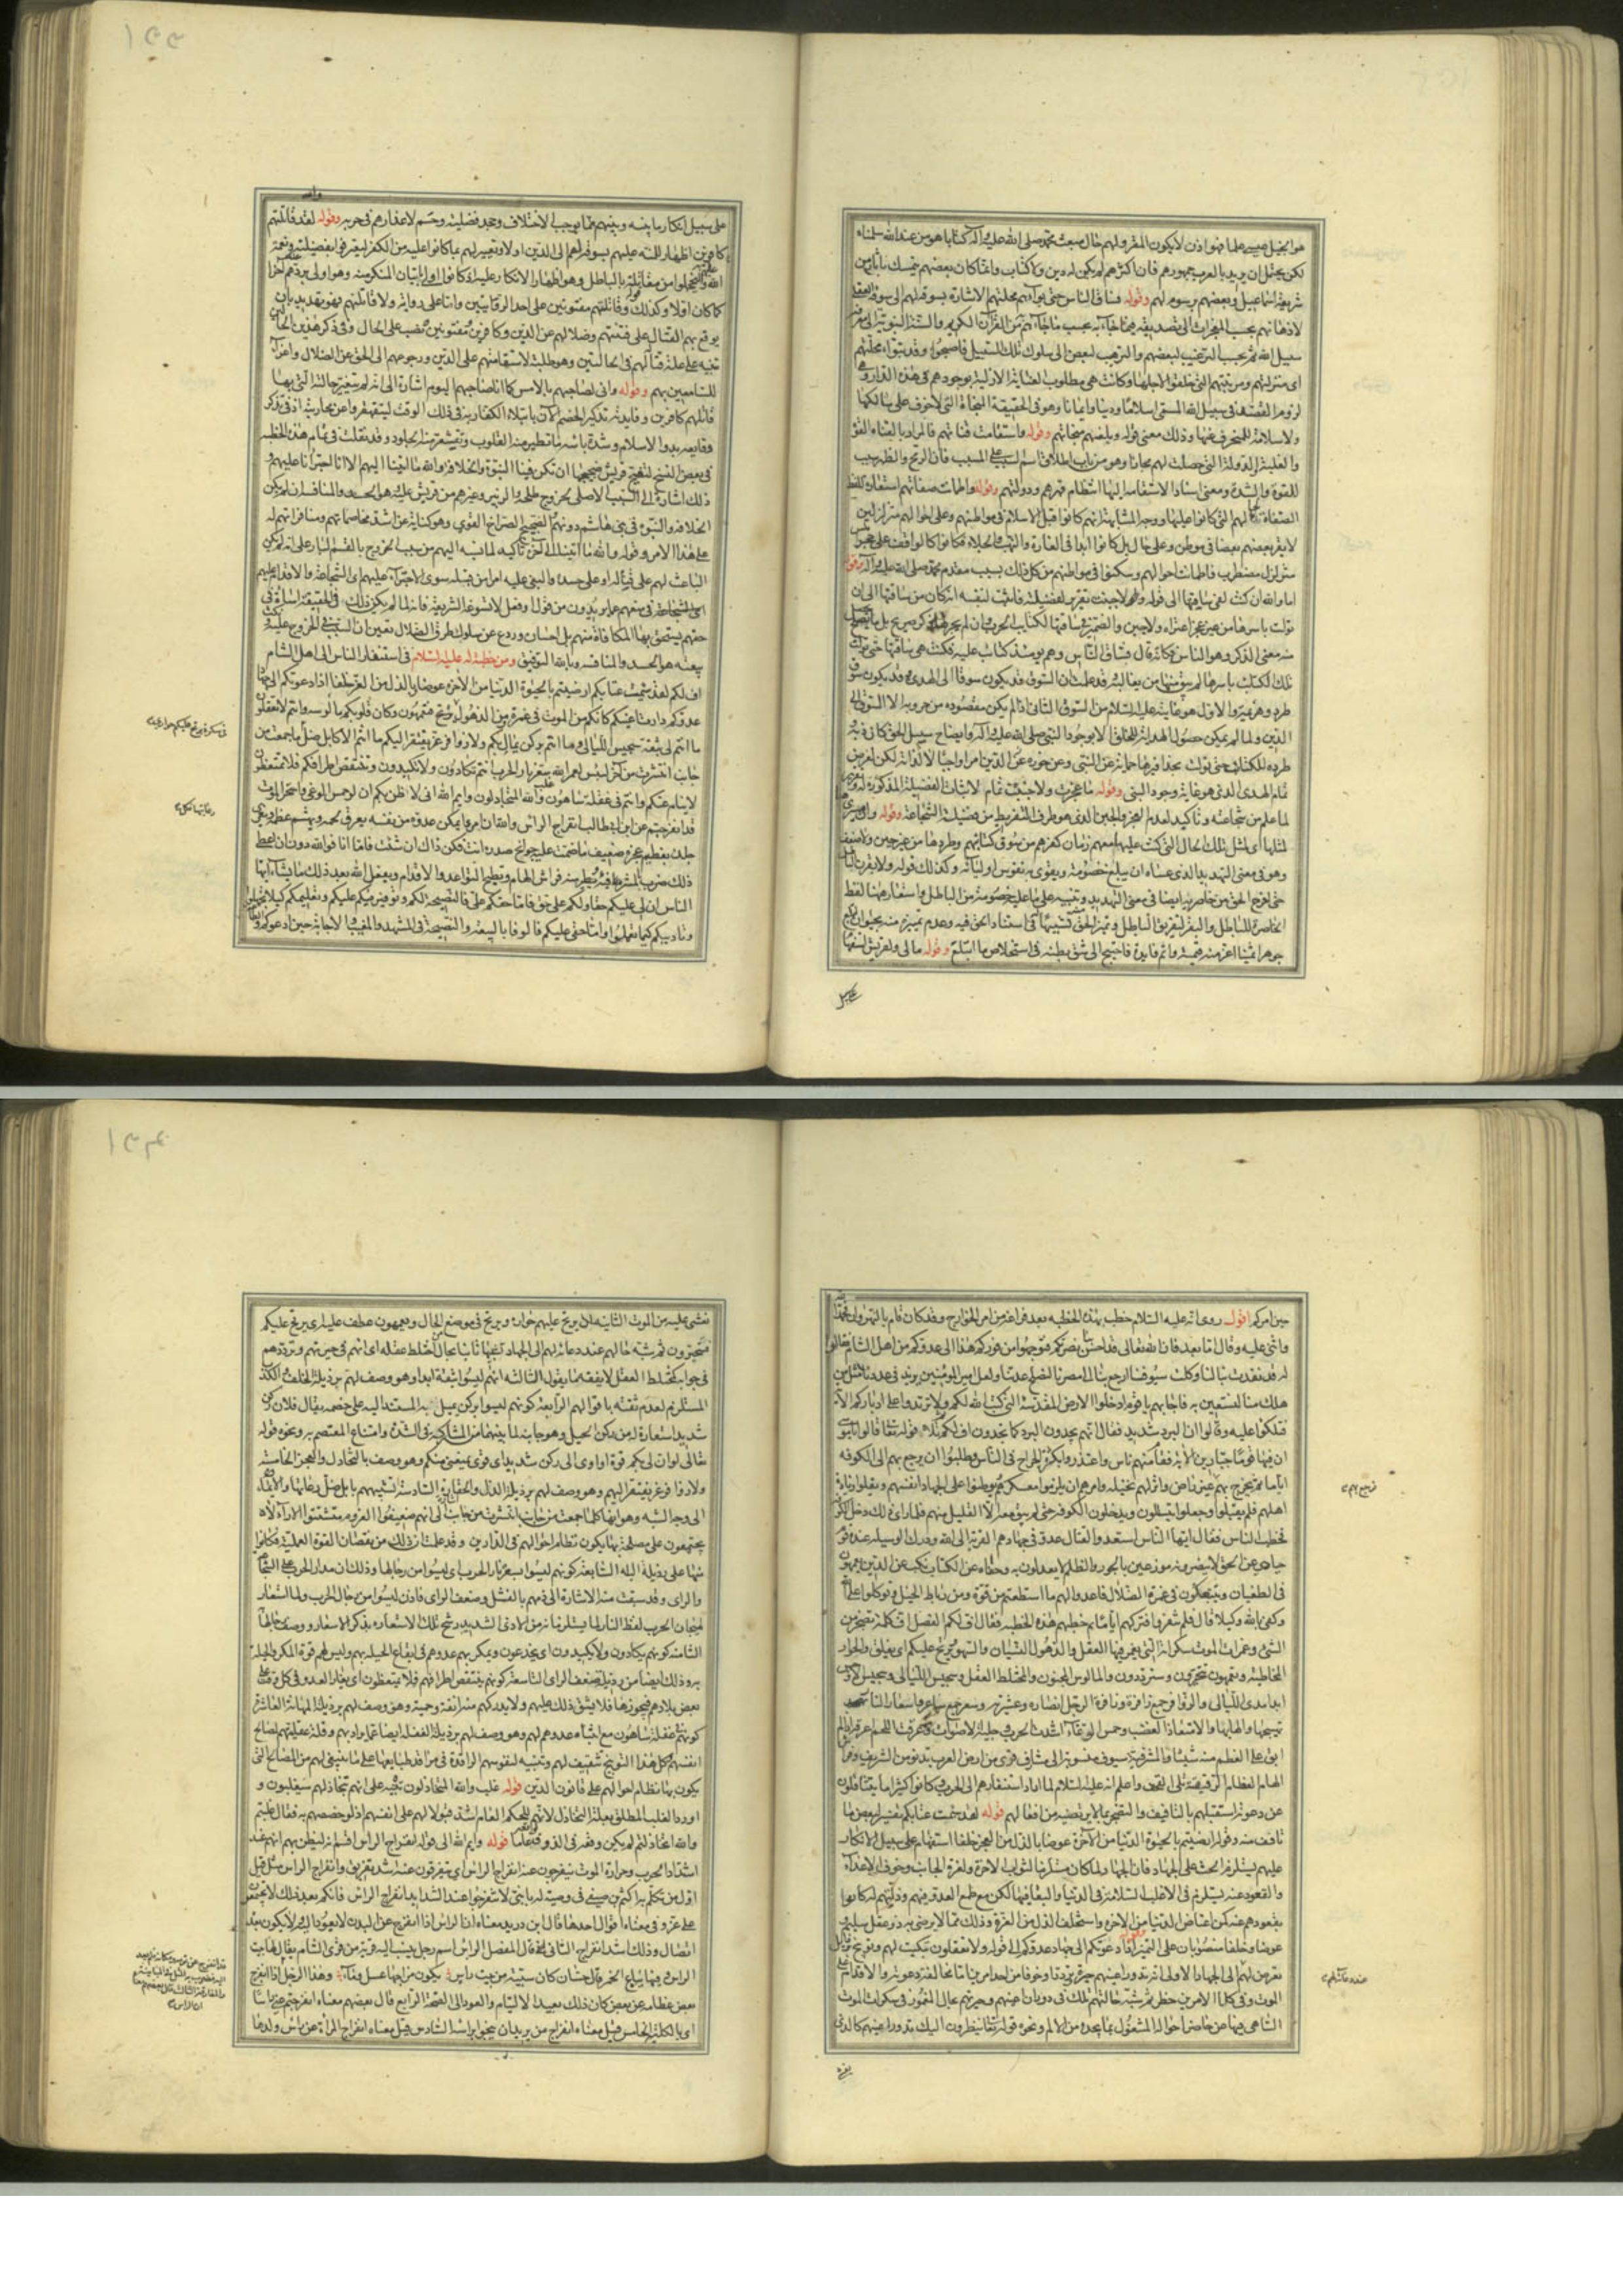 هو انجيل عيسى علما ضوا اذن لا يكون المقرو لهم حال مبعث محمد صلى الله عليه وآله كتابا هو من عند الله سلمناه
لكن يحتمل ان يريد بالعرب جمهورهم فان اكثرهم لم يكن له دين ولا كتاب وانما كان بعضهم يتمسك بآثار من
شريعة اسماعيل وبعضهم برسوم لهم وقوله فساق الناس حتى بوأهم محلتهم الاشارة بسوقه لهم الى سوقه العقلي
لاذهانهم بحسب المعجزات الى تصديقه فيما جاء به بحسب ما جاءهم من القرآن الكريم والسنة النبوية الى معرفة
سبيل الله ثم بحسب الترغيب لبعضهم والترهيب لبعض الى سلوك تلك السبيل فاصبحوا وقد تبوأوا محلتهم
اى منزلتهم ومرتبتهم التى خلقوا لاجلها وكانت هى مطلوب العناية الازلية بوجودهم فى هذه الدار وهى
لزوم القصد فى سبيل الله المسمى اسلاما ودينا وايمانا وهو فى الحقيقة المنجاة التى لا خوف على سالكها
ولا سلامة للمنحرف عنها وذلك معنى قوله وبلغهم منجاتهم وقوله واستقامت قناتهم فالمراد بالقناة القوة
والغلبة والدولة التى حصلت لهم مجازا وهو من باب اطلاق اسم السبب على المسبب فان الرمح والظهر سبب
للقوة والشدة ومعنى اسناد الاستقامة اليها انتظام قهرهم ودولتهم وقوله واطمانت صفاتهم استعارة للفظ
الصفاة لحالهم التى كانوا عليها ووجه المشابهة انهم كانوا قبل الاسلام فى مواطنهم وعلى احوالهم متزلزلين
لا يقر بعضهم بعضا فى موطن وعلى حال بل كانوا ابدا فى الغارة والنهب والجلاء فكانوا كالواقف على حجر املس
متزلزل مضطرب فاطمانت احوالهم وسكنوا فى مواطنهم من كل ذلك بسبب مقدم محمد صلى الله عليه وآله وقوله
اما والله ان كنت لفى ساقتها الى قوله ولا جبنت تقرير لفضيلته فاثبت لنفسه انه كان من ساقتها الى ان
تولت باسرها من غير عجز اعتراه ولا جبن والضمير فى ساقتها لكتايب الحرب وان لم يجر لها ذكر صريح بل ما يحصل
منه معنى الذكر وهو الناس فكانه قال فساق الناس وهم يومئذ كتائب عليه فكنت فى ساقتها حتى تولت
تلك الكتائب باسرها لم يبق منها من يغالبه وقد علمت ان السوق قد يكون سوقا الى الهدى وقد يكون سوق
طرد وهزيمة والاول هو غايته عليه السلام من السوق الثانى اذ لم يكن مقصوده من حروبه الا السوق الى
الدين ولما لم يمكن حصول الهداية للخلق الا بوجود النبى صلى الله عليه وآله وايضاح سبيل الحق كان ذبه
طرده للكتائب حتى تولت بحذافيرها حماية عن النبى وعن حوزة الدين امرا واجبا لا لذاته لكن لغرض
تمام الهدى الذى هو غاية وجود النبى وقوله ما عجزت ولا جبنت تمام لاثبات الفضيلة المذكورة له
لما علم من شجاعته وتاكيد لعدم العجز والجبن الذى هو طرف التفريط من فضيلة الشجاعة وقوله وان مسيرى
لمثلها اى لمثل تلك الحال التى كنت عليها معهم زمان كفرهم من سوق كتائبهم وطردها من غير جبن ولا ضعف
وهو فى معنى التهديد الذى عساه ان يبلغ خصومه ويقوى به نفوس اوليائه وكذلك قوله ولابقرن الباطل
حتى اخرج الحق من خاصرته ايضا فى معنى التهديد وتنبيه على ما عليه خصومه من الباطل واستعار هنا لفظ
الخاصرة للباطل والبقر لتفريق الباطل وتميز الحق تشبيها فى استتار الحق فيه وعدم تميزه منه بحيوان ابتلع
جوهرا ثمينا اعز منه قيمة واتم فايدة فاحتيج الى شق بطنه فى استخلاص ما ابتلع وقوله مالى ولقريش استفهام
على سبيل
على سبيل انكار ما بينه وبينهم مما يوجب الاختلاف وجحد فضيلته وحسم لاعذارهم فى حربه وقوله لقد قاتلتهم
كافرين اظهار للمنة عليهم بسوقه لهم الى الدين اولا وتعيير لهم بما كانوا عليه من الكفر ليعرفوا بفضيلته ونعمة
الله وليخجلوا من مقابلته بالباطل وهو اظهار الانكار عليه اذ كانوا اولى باتيان المنكر منه وهو اولى بردهم آخرا
كما كان اولا وكذلك قوله ولاقاتلنهم مفتونين على احد الروايتين واما على رواية ولاقاتلنهم فهو تهديد بان
يوقع بهم القتال على فتنتهم وضلالهم عن الدين وكافرين ومفتونين نصب على الحال وفى ذكر هذين الحالين
تنبيه على علة قتاله لهم فى الحالتين وهو طلبه لاستقامتهم على الدين ورجوعهم الى الحق عن الضلال واغراء
للسامعين بهم وقوله وانى لصاحبهم بالامس كما انا صاحبهم اليوم اشارة الى انه لم تتغير حالته التى بها
قاتلهم كافرين وفايدته تذكير الخصم الآن بابتلاء الكفار به فى ذلك الوقت ليتقهقروا عن محاربته اذ فى تذكر
وقايعه ببدو الاسلام وشدة باسه ما تطير منه القلوب وتقشعر منه الجلود وقد نقلت فى تمام هذه الخطبة
فى بعض النسخ لتضج قريش ضجيجها ان تكن فينا النبوة والخلافة والله ما اتينا اليهم الا انا اجترأنا عليهم و
ذلك اشارة الى السبب الاصلى لخروج طلحة والزبير وغيرهم من قريش عليه وهو الحسد والمنافسة ان يكون
الخلافة والنبوة فى بنى هاشم دونهم والضجيج الصراخ القوى وهو كناية عن اشد مخاصماتهم ومنافراتهم له
على هذا الامر وقوله والله ما اتينا الى آخره تاكيد لما نسبه اليهم من سبب الخروج بالقسم البار على انه لم يكن
الباعث لهم على قتاله او على حسده والبغى عليه امرا من قبله سوى الاجتراء عليهم اى الشجاعة والاقدام عليهم
اى الشجاعة فى منعهم عما يريدون من قول او فعل لا تسوغه الشريعة فانه لما لم يكن ذلك فى الحقيقة اساءة فى
حقهم يستحق بها المكافاة منهم بل احسان وردع عن سلوك طرق الضلال تعين ان السبب فى الخروج عليه ونكث
بيعته هو الحسد والمنافسة وبالله التوفيق ومن خطبة له عليه السلام فى استنفار الناس الى اهل الشام
اف لكم لقد سئمت عتابكم ارضيتم بالحيوة الدنيا من الآخرة عوضا وبالذل من العز خلفا اذا دعوتكم الى جهاد
عدوكم دارت اعينكم كانكم من الموت فى غمرة ومن الذهول فى سكرة يرتج عليكم حوارى فتعمهون وكان قلوبكم مالوسة وانتم لا تعقلون
ما انتم لى بثقة سجيس الليالى وما انتم بركن يمال بكم ولا زوافر عز يفتقر اليكم ما انتم الا كابل ضل رعاتها فكلما جمعت من
جانب انتشرت من آخر لبئس لعمر الله سعر نار الحرب انتم تكادون ولا تكيدون وتنتقص اطرافكم فلا تمتعضون
لا ينام عنكم وانتم فى غفلة ساهون غلب والله المتخاذلون وايم الله انى لاظن بكم ان لو حمس الوغى واستحر الموت
قد انفرجتم عن ابن ابى طالب انفراج الراس والله ان امرءا يمكن عدوه من نفسه يعرق لحمه ويهشم عظمه ويفرى
جلده لعظيم عجزه ضعيف ما ضمت عليه جوانح صدره انت فكن ذاك ان شئت فاما انا فوالله دون ان اعطى
ذلك ضرب بالمشرفية تطير منه فراش الهام وتطيح السواعد والاقدام ويفعل الله بعد ذلك ما يشاء ايها
الناس ان لى عليكم حقا ولكم على حق فاما حقكم على فالنصيحة لكم وتوفير فيئكم عليكم وتعليمكم كيلا تجهلوا
وتاديبكم كيما تعلموا واما حقى عليكم فالوفا بالبيعة والنصيحة فى المشهد والمغيب والاجابة حين ادعوكم والطاعة
حين امركم اقول روى انه عليه السلام خطب بهذه الخطبة بعد فراغه من امر الخوارج وقد كان قام بالنهروان فحمد الله
واثنى عليه وقال اما بعد فان الله تعالى قد احسن بنا نصركم فتوجهوا من فوركم هذا الى عدوكم من اهل الشام فقالوا
له قد نفدت نبالنا وكلت سيوفنا ارجع بنا الى مصرنا لنصلح عدتنا ولعل امير المؤمنين يزيد فى عددنا مثل من
هلك منا لنستعين به فاجابهم يا قوم ادخلوا الارض المقدسة التى كتب الله لكم ولا ترتدوا على ادباركم الآية
فتلكئوا عليه وقالوا ان البرد شديد فقال انهم يجدون البرد كما تجدون اف لكم ثم تلا قوله تعالى قالوا يا موسى
ان فيها قوما جبارين الآية فقام منهم ناس واعتذروا بكثرة الجراح فى الناس وطلبوا ان يرجع بهم الى الكوفة
اياما ثم يخرج بهم فرجع بهم غير راض وانزلهم نخيلة وامرهم ان يلزموا معسكرهم ويوطنوا على الجهاد انفسهم ويقلوا زيارة
اهلهم فلم يقبلوا وجعلوا يتسللون ويدخلون الكوفة حتى لم يبق معه الا القليل منهم فلما راى ذلك دخل الكوفة
فخطب الناس فقال ايها الناس استعدوا لقتال عدو فى جهادهم القربة الى الله ودرك الوسيلة عنده قوم
حيارى عن الحق لا يبصرونه موزعين بالجور والظلم لا يعدلون به وجفاة عن الكتاب نكب عن الدين يعمهون
فى الطغيان ويتسكعون فى غمرة الضلال فاعدوا لهم ما استطعتم من قوة ومن رباط الخيل وتوكلوا على الله
وكفى بالله وكيلا قال فلم ينفروا فتركهم اياما ثم خطبهم هذه الخطبة فقال اف لكم الفصل اف كلمة تضجر من
الشىء وغمرات الموت سكراته التى يغمر فيها العقل والذهول النسيان والسهو ويرتج عليكم اى يغلق والحوار
المخاطبة وتعمهون تتحيرون وتترددون والمالوس المجنون والمختلط العقل وسجيس الليالى وسجيس الاوجس
ابدا مدى الليالى والزوافر جمع زافرة وزافرة الرجل انصاره وعشيرته وسعر جمع ساعر واسعار النار
تهييجها والهابها والامتعاض الغضب وحمس الوغى اشتدت الحرب وجلبة الاصوات وعرقت اللحم اعرقه اذا لم
ابق على العظم منه شيئا والمشرفية سيوف منسوبة الى مشارف قرى من ارض العرب تدنو من الريف وفراش
الهام العظام الرقيقة تلى القحف واعلم انه عليه السلام لما اراد استنفارهم الى الحرب وكانوا كثيرا ما يتثاقلون
عن دعوته استقبلهم بالتافيف والتضجر بما لا يرتضيه من افعالهم قوله لقد سئمت عتابكم تفسير لبعض ما
تافف منه وقوله ارضيتم بالحيوة الدنيا من الآخرة عوضا وبالذل من العز خلفا استفهام على سبيل الانكار
عليهم يستلزم الحث على الجهاد فان الجهاد لما كان مستلزما لثواب الآخرة ولعزة الجانب وخوف الاعداء
والقعود عنه يستلزم فى الاغلب السلامة فى الدنيا والبقاء فيها لكن مع طمع العدو فيهم وذلتهم له كانوا
بقعودهم عنه كمن اعتاض الدنيا من الآخرة واستخلف الذل من العزة وذلك مما لا يرضى به ذو عقل سليم
عوضا وخلفا منصوبان على التمييز وقوله اذا دعوتكم الى جهاد عدوكم الى قوله ولا تعقلون تبكيت لهم وتوبيخ
بعدم ثباتهم الى الجهاد الاولى انه تدور اعينهم حيرة وترددا وخوفا من احد امرين اما مخالفة دعوته والاقدام على
الموت وفى كلا الامرين خطر ثم شبه حالتهم تلك فى دوران اعينهم وحيرتهم بحال المغمور فى سكرات الموت
الساهى فيها عن حاضر احواله المشغول بما يجده من الالم ونحوه قوله تعالى ينظرون اليك تدور اعينهم كالذى
يغشى
يغشى عليه من الموت الثانية ان يرتج عليهم حواره ويرتج فى موضع الحال وتعمهون عطف عليه اى يرتج عليكم
فتتحيرون ثم شبه حالهم عند دعائه لهم الى الجهاد تشبيها ثانيا بحال من اختلط عقله اى انهم فى حيرتهم وترددهم
فى جوابه كمختلط العقل لا يفقه ما يقول الثالثة انهم ليسوا بثقة ابدا وهو وصف لهم برذيلة الخلف والكذب
المستلزم لعدم ثقته باقوالهم الرابعة كونهم ليسوا بركن يميل به المستند اليه على خصمه يقال فلان ركن
شديد استعارة له من ركن الجبل وهو جانبه لما بينهما من المشاركة فى الشدة وامتناع المعتصم به ونحوه قوله
تعالى لو ان لى بكم قوة او آوى الى ركن شديد اى قوى يمنعنى منكم وهو وصف بالتخاذل والعجز الخامسة
ولا زوافر عز يفتقر اليهم وهو وصف لهم برذيلة الذل والحقارة السادسة تشبيههم بابل ضل رعاتها والايماء
الى وجه الشبه وهو انها كلما جمعت من جانب انتشرت من جانب الى انهم ضعيفوا العزوم متشتتوا الآراء لا
يجتمعون على مصلحة بها يكون نظام احوالهم فى الدارين وقد علمت ان ذلك من نقصان القوة العملية فكانوا
منها على رذيلة البله السابعة كونهم ليسوا بسعر نار الحرب اى ليسوا من رجالها وذلك ان مدار الحرب على الشجاعة
والراى وقد سبقت منه الاشارة الى ذمهم بالفشل وضعف الراى فاذن ليسوا من رجال الحرب ولما استعار
لهيجان الحرب لفظ النار لما يستلزمانه من الاذى الشديد رشح تلك الاستعارة بذكر الاسعار ووصف رجالها به
الثامنة كونهم يكادون ولا يكيدون اى يخدعون ويمكر بهم عدوهم فى ايقاع الحيلة بهم وليس لهم قوة المكر والحيلة
به وذلك ايضا من رذيلة ضعف الراى التاسعة كونهم ينتقص اطرافهم فلا يمتعضون اى يغار العدو فى كل وقت على
بعض بلادهم فيحوزها فلا يشق ذلك عليهم ولا يدركهم منه انفة وحمية وهو وصف لهم برذيلة المهانة العاشرة
كونهم فى غفلة ساهون مع انتباه عدوهم لهم وهو وصف لهم برذيلة الغفلة ايضا عما يراد بهم وقلة عقليتهم لمصالح
انفسهم وكل هذا التوبيخ تثقيف لهم وتنبيه لنفوسهم الراقدة فى مراقد طبايعها على ما ينبغى لهم من المصالح التى
يكون بها نظام احوالهم على قانون الدين قوله غلب والله المتخاذلون تنبيه على انهم بتخاذلهم سيغلبون و
اورد الغلب المطلق بعلة التخاذل لان للحكم العام اشد قبولا لهم على انفسهم اذ لو خصصهم به فقال غلبتم
والله لتخاذلكم لم يكن وقعه فى الذوق كوقعه عاما قوله وايم الله الى قوله انفراج الراس اقسم انه ليظن بهم انهم عند
اشتداد الحرب وحرارة الموت ينفرجون عنه انفراج الراس اى يتفرقون عنه اشد تفريق وانفراج الراس مثل قيل
اول من تكلم به اكثم بن صيفى فى وصية له يا بنى لا تنفرجوا عند الشدايد انفراج الراس فانكم بعد ذلك لا تجتمعون
على عز وفى معناه اقوال احدها قال ابن دريد معناه ان الراس اذا انفرج عن البدن لا يعود اليه ولا يكون بعده
اتصال وذلك اشد انفراج الثانى قال المفضل الراس اسم رجل ينسب اليه قرية من قرى الشام يقال لها بيت
الراس وفيها يباع الخمر قال حسان كان سبيئة من بيت راس يكون مزاجها عسل وماء وهذا الرجل قد انفرج
بعض عظامه عن بعض كان ذلك بعيد الالتيام والعود الى الصحة الرابع قال بعضهم معناه انفرجتم عنى راسا
اى بالكلية الخامس قيل معناه انفراج من يريد ان ينجو براسه السادس قيل معناه انفراج المراة عن راس ولدها